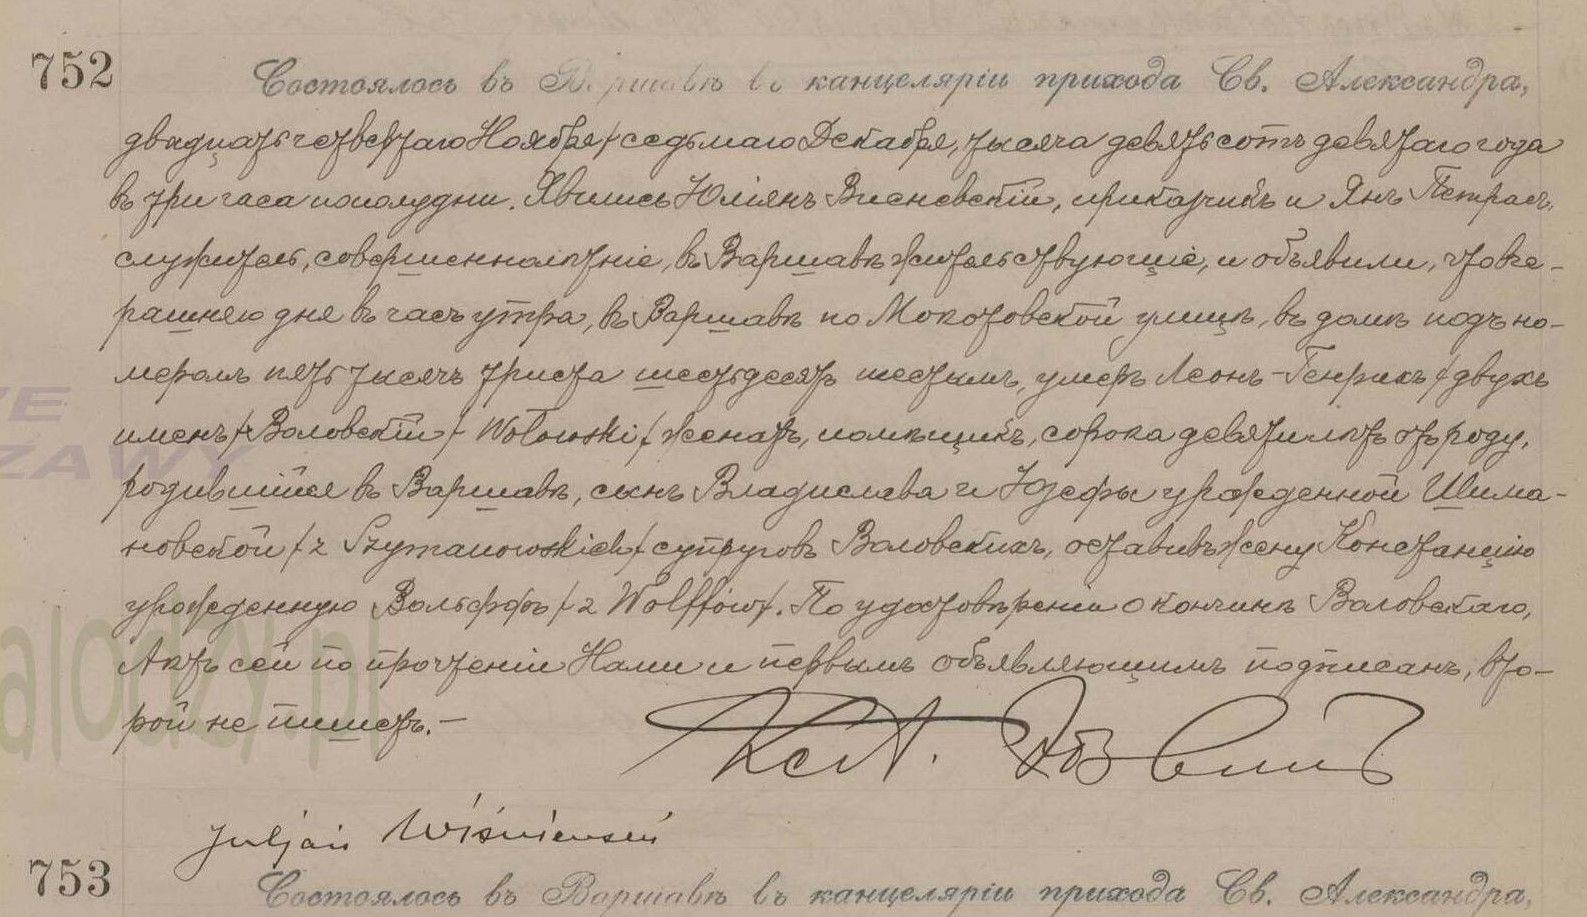 752
Состоялось въ Варшавѣ въ канцеляріи прихода Св. Александра,
двадцать четвертаго Ноября / седьмаго Декабря, тысяча девятьсотъ девятаго года
въ три часа пополудни. Явились Юліянъ Висневскій, прикащикъ и Янъ Петрасъ,
служитель, совершеннолѣтніе, въ Варшавѣ жительствующіе, и объявили, что вче-
рашняго дня въ часъ утра, въ Варшавѣ по Мокотовской улицѣ, въ домѣ подъ но-
меромъ пять тысячъ триста шестьдесятъ шестымъ, умеръ Леонъ-Генрихъ / двухъ
именъ / Воловскій / Wołowski / женатъ, помѣщикъ, сорока девяти лѣтъ отъ роду,
родившійся въ Варшавѣ, сынъ Владислава и Юзефы урожденной Шима-
новской / z Szymanowskich / супруговъ Воловскихъ, оставивъ жену Констанцію
урожденную Вольффъ / z Wolffów /. По удостовѣреніи о кончинѣ Воловскаго,
Актъ сей по прочтеніи Нами и первымъ объявляющимъ подписанъ, вто-
рой не пишетъ. —
Juljan Wiśniewski
753
Состоялось въ Варшавѣ въ канцеляріи прихода Св. Александра,
ZAWY
alodzy.pl